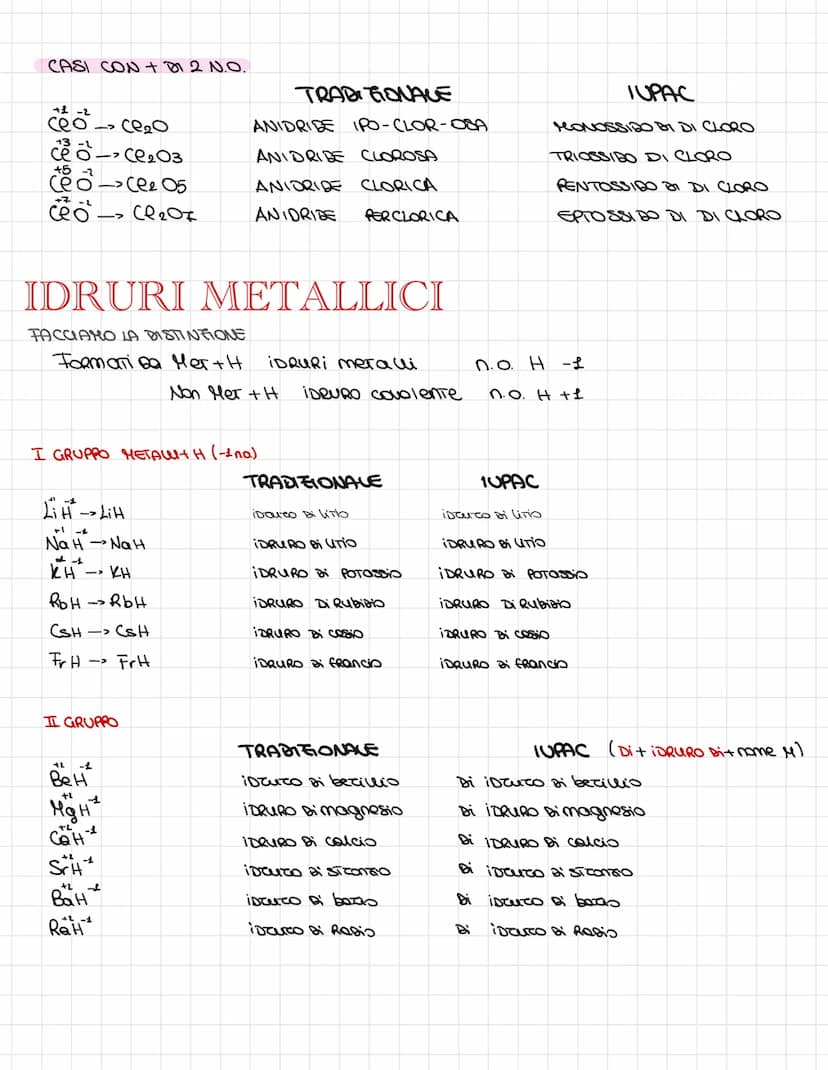 CASI CON + DI 2 N.O.
TRADIZIONALE IUPAC
+1 -2
ClO → Cl2O ANIDRIDE IPO-CLOR-OSA MONOSSIDO DI DI CLORO
+3 -2
ClO → Cl2O3 ANIDRIDE CLOROSA TRIOSSIDO DI CLORO
+5 -2
ClO → Cl2O5 ANIDRIDE CLORICA PENTOSSIDO DI DI CLORO
+7 -2
ClO → Cl2O7 ANIDRIDE PERCLORICA EPTOSSIDO DI DI CLORO
IDRURI METALLICI
FACCIAMO LA DISTINZIONE
Formati da Met+H idruri metalli n.o. H -1
Non Met + H idruro covalente n.o. H +1
I GRUPPO METALLI+H (-1 no)
TRADIZIONALE IUPAC
+1 -1
LiH → LiH idruro di litio idruro di litio
+1 -1
NaH → NaH idruro di litio idruro di litio
+1 -1
KH → KH idruro di potassio idruro di potassio
RbH → RbH idruro di Rubidio idruro di Rubidio
CsH → CsH idruro di cesio idruro di cesio
FrH → FrH idruro di francio idruro di francio
II GRUPPO
TRADIZIONALE IUPAC (Di + idruro di + nome M)
+2 -1
BeH idruro di berillio Di idruro di berillio
+2 -1
MgH idruro di magnesio Di idruro di magnesio
+2 -1
CaH idruro di calcio Di idruro di calcio
+2 -1
SrH idruro di stronso Di idruro di stronso
+2 -1
BaH idruro di bario Di idruro di bario
+2 -1
RaH idruro di Radio Di idruro di Radio